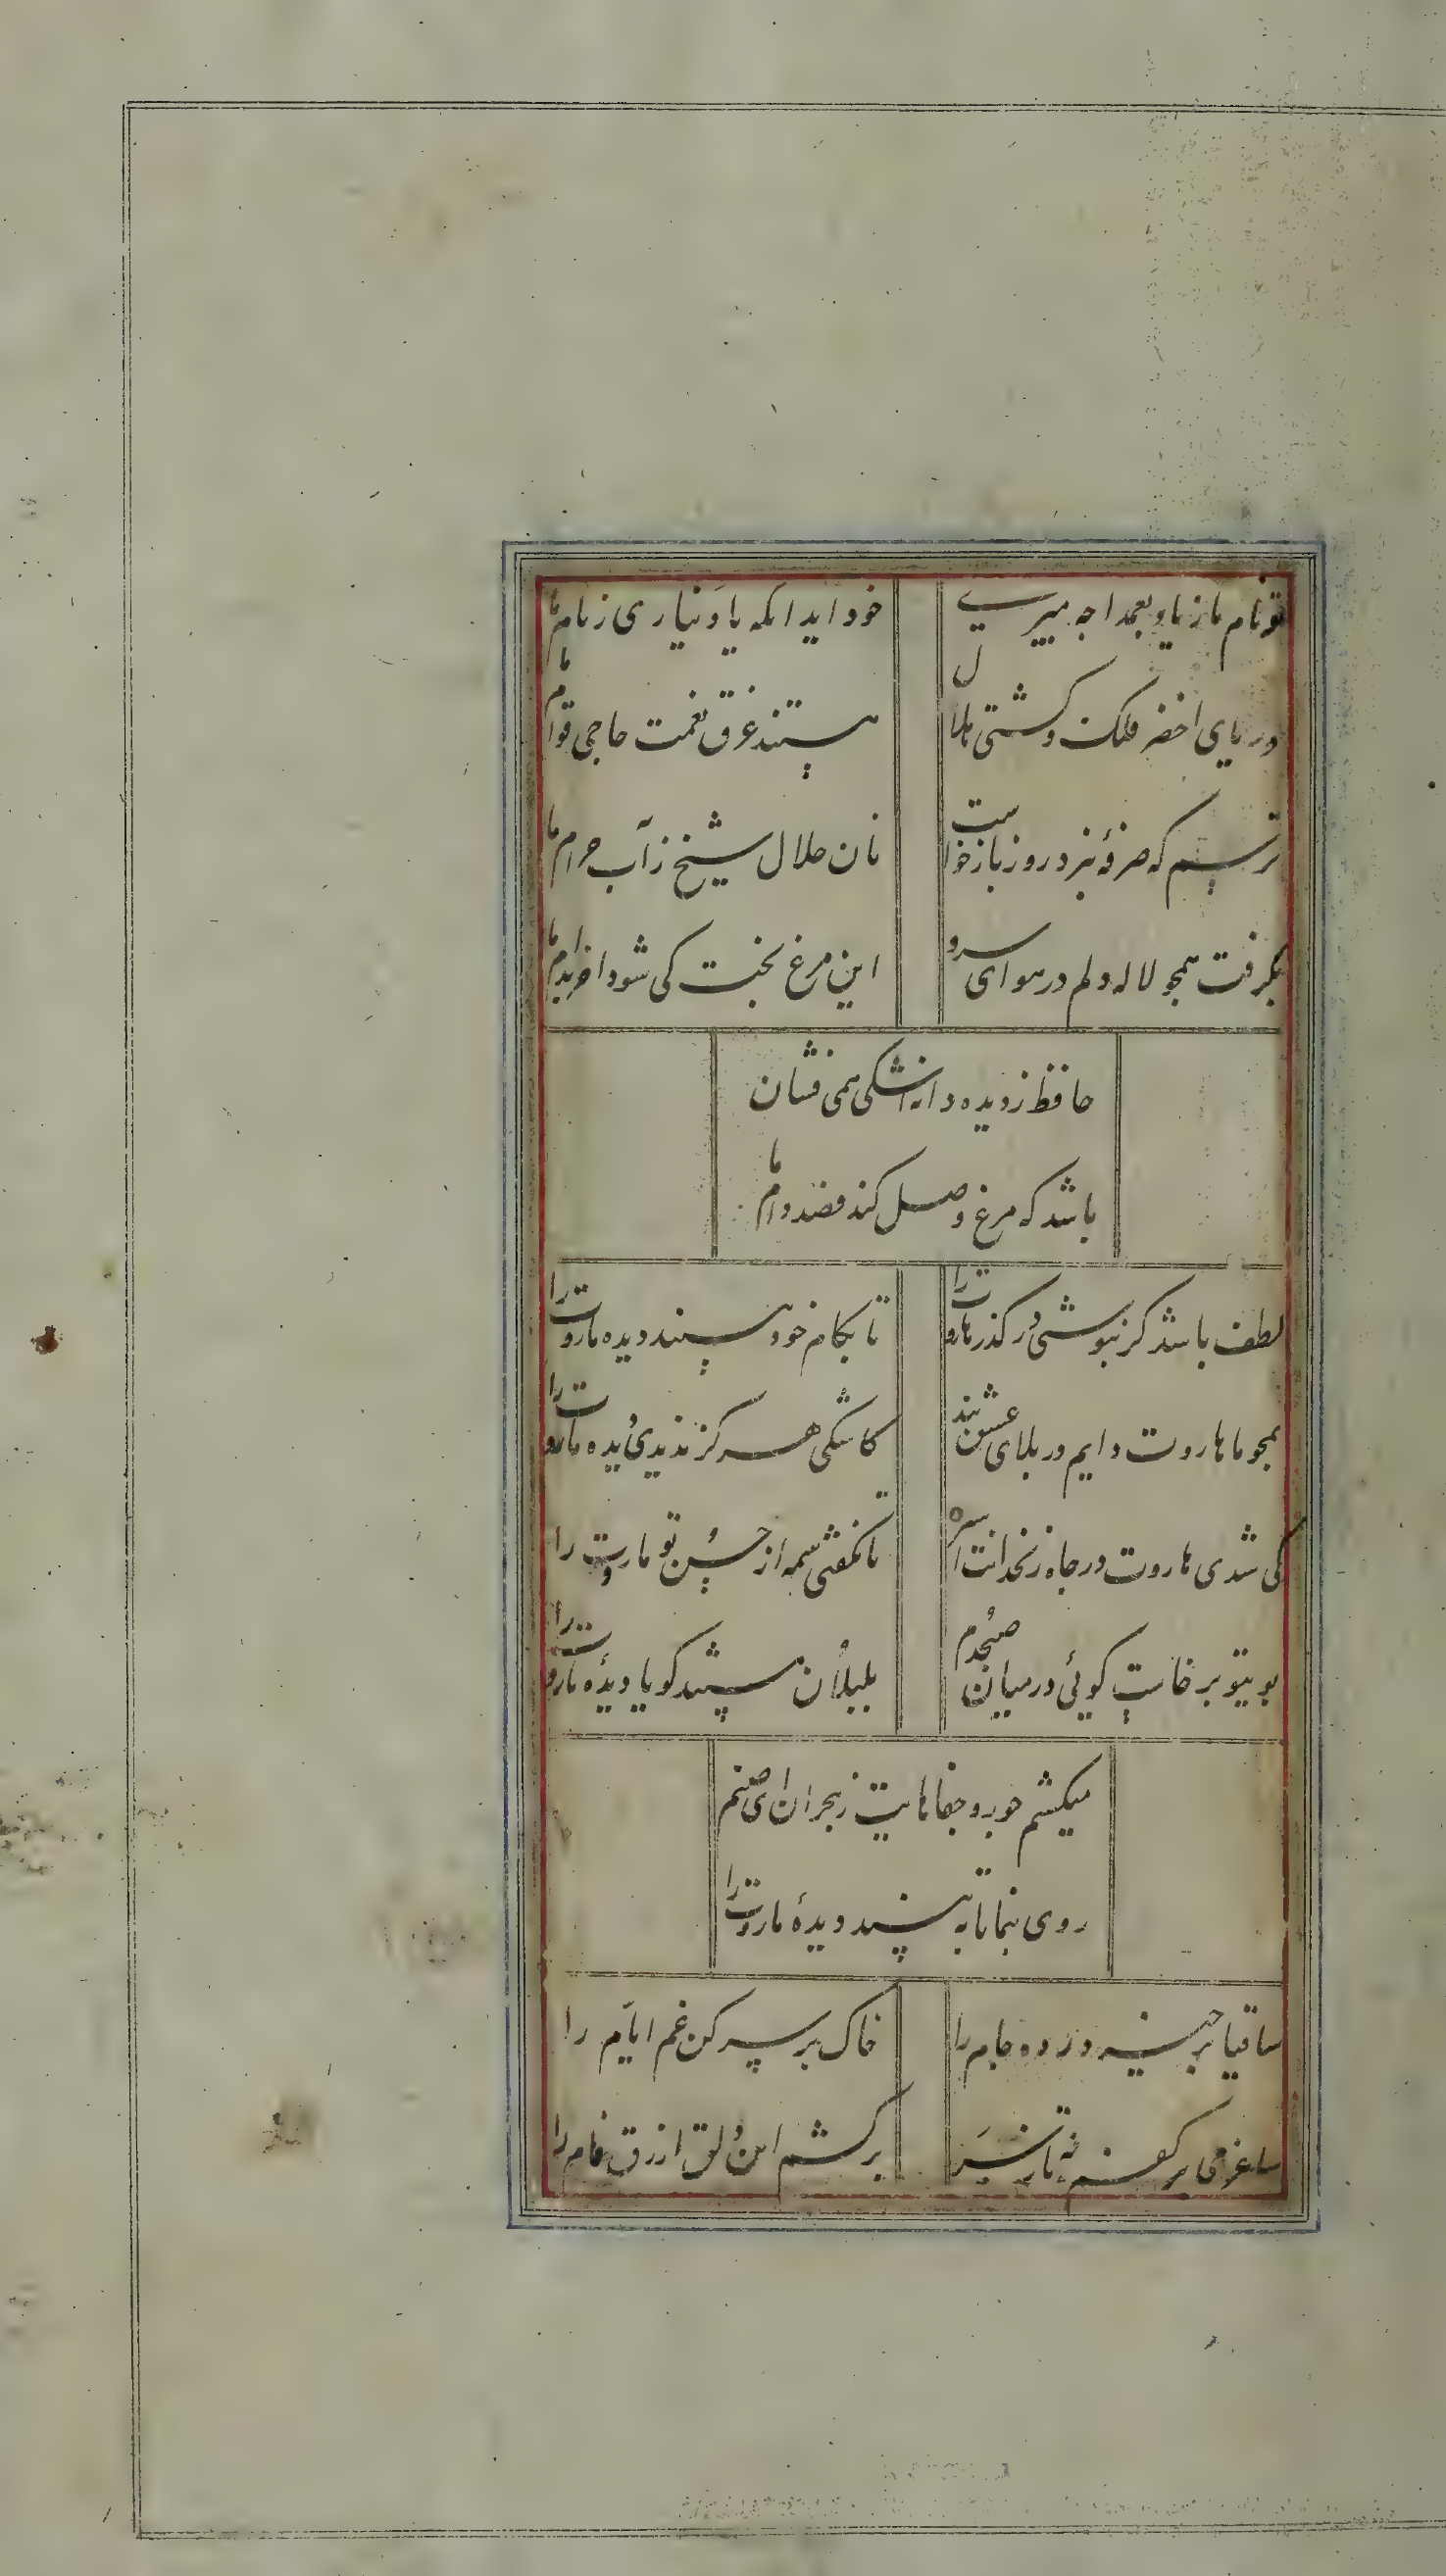 تو نام ما ز یاد بعمدا چه میبری
خود اید انکه یاد نیاری ز نام ما
دریای اخضر فلک و کشتی هلال
هستند غرق نعمت حاجی قوام ما
ترسم که صرفهٔ نبرد روز بازخواست
نان حلال شیخ ز آب حرام ما
بگرفت همچو لاله دلم در هوای سرو
این مرغ بخت کی شود اخر بدام ما
حافظ ز دیده دانه اشکی همی فشان
باشد که مرغ وصل کند قصد دام ما
لطف باشد گر نپوشی در گذر ها روت را
تا بکام خود ببیند دیده ما روت را
همچو ما هاروت دایم در بلای عشق بند
کاشکی هرگز ندیدی دیده ما روت را
کی شدی هاروت در چاه زنخدانت اسره
تا نگفتی شمه از حسن تو ماروت را
بوی تو برخاست گوئی در میان صبحدم
بلبلان مستند گویا دیدهٔ ما روت را
میکشم جور و جفاهایت ز هجران ای صنم
روی بنما تا به بیند دیدهٔ ما روت را
ساقیا برخیز و در ده جام را
خاک بر سر کن غم ایام را
ساغر می بر کفم نه تا ز سر
برکشم این دلق ازرق فام را